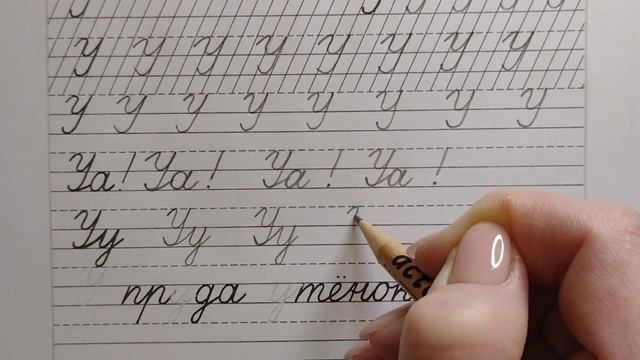 у у у у у у
У У У У У У У У
У У У У У У У У
Уа! Уа! Уа! Уа!
Уу Уу Уу
пруда утёнок